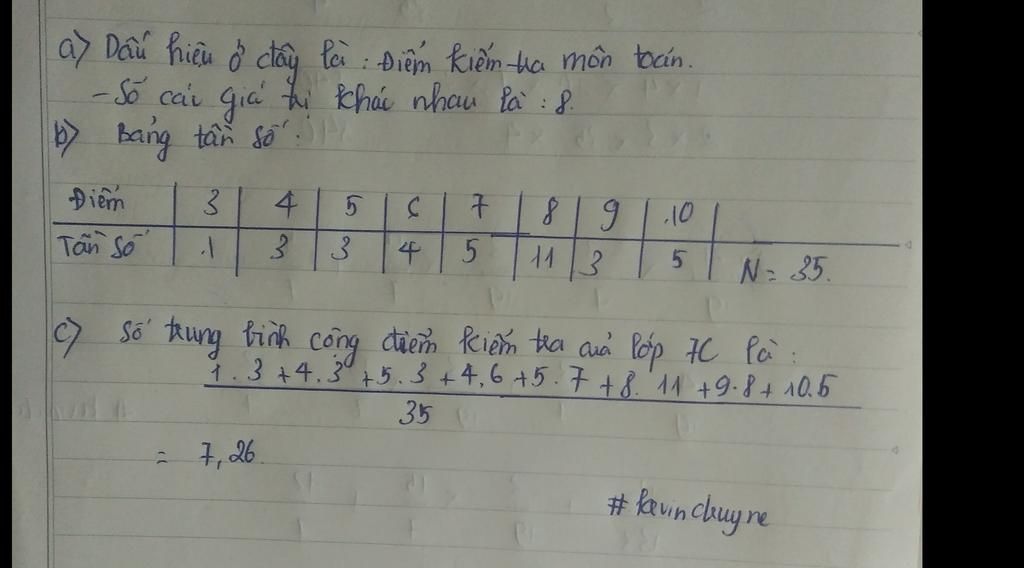 a) Dấu hiệu ở đây là : Điểm kiểm tra môn toán.
- Số các giá trị khác nhau là : 8.
b) Bảng tần số :
Điểm 3 4 5 6 7 8 9 10
Tần số 1 3 3 4 5 11 3 5 N = 35.
c) Số trung bình cộng điểm kiểm tra của lớp 7C là :
1.3 + 4.3 + 5.3 + 4.6 + 5.7 + 8.11 + 9.8 + 10.5
35
= 7,26